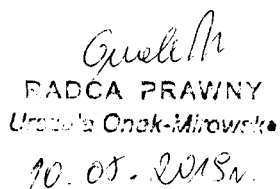 RADCA PRAWNY
Urszula Onak-Mirowska
10.05.2019r.